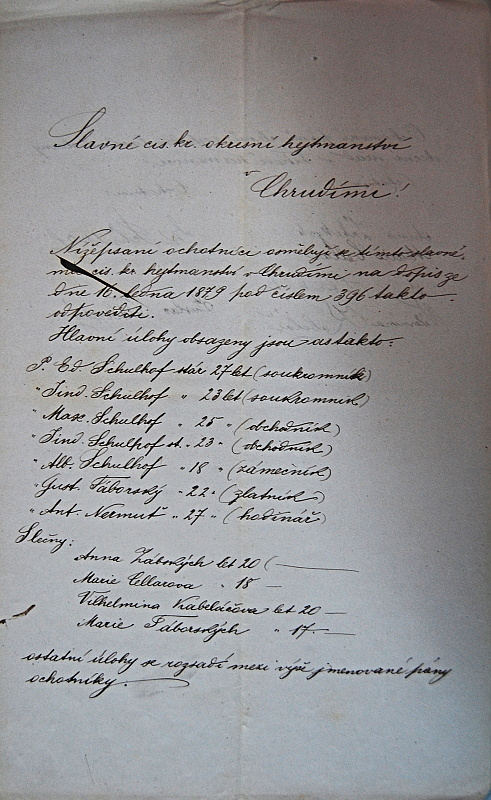 Slavné cis. kr. okresní hejtmanství
v
Chrudimi!
Nížepsaní ochotníci osmělují se tímto slavné-
mu cis. kr. hejtmanství v Chrudimi na dopis ze
dne 16. ledna 1879 pod číslem 396 takto
odpověděti.
Hlavní úlohy obsazeny jsou as takto:
P. Ed. Schulhof stár 27 let (soukromník)
" Jind. Schulhof " 23 let (soukromník)
" Max. Schulhof " 25 " (obchodník)
" Jind. Schulhof st. " 23 " (obchodník)
" Alb. Schulhof " 18 " (zámečník)
" Gust. Táborský " 22 " (zlatník)
" Ant. Nermuť " 27 " (hodinář)
Slečny:
Anna Zábských let 20 (
Marie Cellarova " 18 —
Vilhelmina Kabeláčova let 20 —
Marie Táborských " 17. —
ostatní úlohy se rozsadí mezi výše jmenované pány
ochotníky.